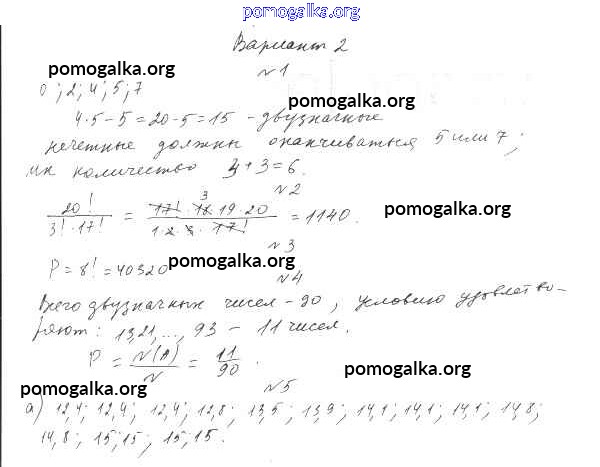 pomogalka.org
Вариант 2
pomogalka.org
№1
0; 2; 4; 5; 7
pomogalka.org
4·5-5=20-5=15 - двузначные
нечетные должны оканчиваться 5 или 7;
их количество 3+3=6.
№2
20!/3!·17! = 17!·18·19·20/1·2·3·17! = 1140.
3
pomogalka.org
№3
P=8!=40320
pomogalka.org
№4
Всего двузначных чисел - 90, условию удовлетво-
ряют: 13,21,..., 93 - 11 чисел.
P = N(A)/N = 11/90.
pomogalka.org
pomogalka.org
№5
а) 12,4; 12,4; 12,4; 12,8; 13,5; 13,9; 14,1; 14,1; 14,1; 14,8;
14,8; 15,15; 15,15.